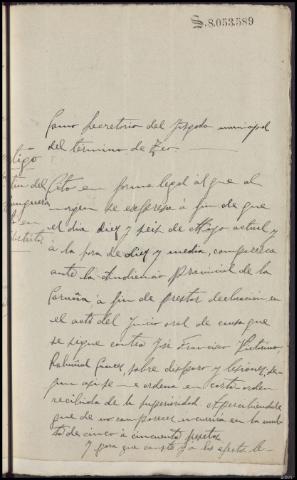 S.8.053.589
Como Secretario del Juzgado municipal
del termino de Teo.
Cito en forma legal al que al
margen se expresa á fin de que
el dia diez y seis de Mayo actual y
á la hora de diez y media, comparezca
ante la Audiencia Provincial de la
Coruña á fin de prestar declaracion en
el acto del juicio oral de causa que
se sigue contra José Francisco
sobre disparo y lesiones, se-
gun asi se ordena en carta orden
recibida de la superioridad Apercibiendole
que de no comparecer incurrirá en la mul-
ta de cinco á cincuenta pesetas
Y para que conste y á los efectos le-
tigo